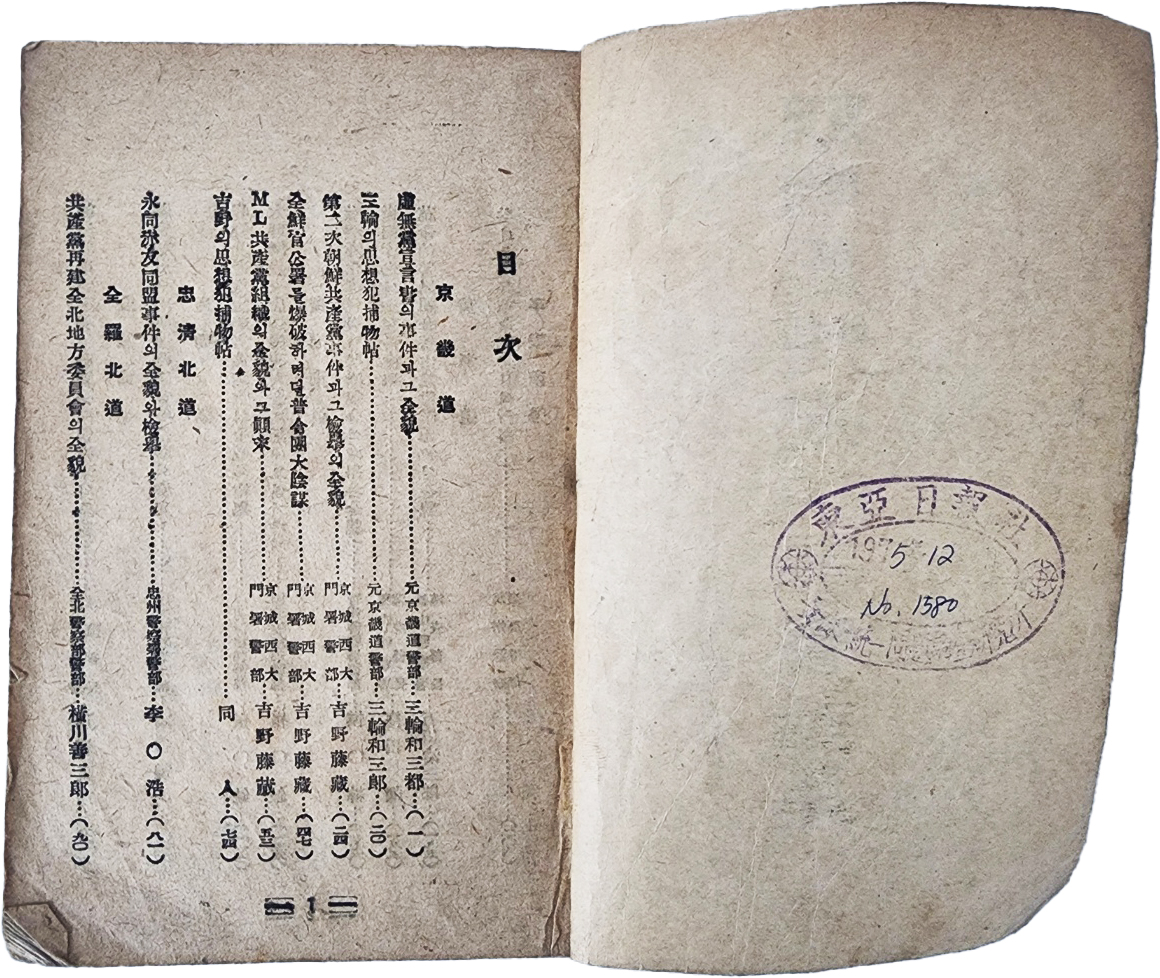 東亞日報社
1975 12
No. 1380
目次
京畿道
虛無黨宣言書의 事件과 그 全貌 元京畿道警部 三輪和三郎 (一)
三輪의 思想犯捕物帖 元京畿道警部 三輪和三郎 (二〇)
第二次朝鮮共產黨事件과 그 檢擧의 全貌 京城西大門署警部 吉野藤藏 (二四)
全鮮官公署를 爆破하려던 普合團大陰謀 京城西大門署警部 吉野藤藏 (四七)
ML共產黨組織의 全貌와 그 顚末 京城西大門署警部 吉野藤藏 (五三)
吉野의 思想犯捕物帖 同人 (七四)
忠淸北道
永同 友同盟事件의 全貌와 檢擧 忠州警察署警部 李〇浩 (八一)
全羅北道
共產黨再建全北地方委員會의 全貌 全北警察部警部 橫川善三郎 (九〇)
1